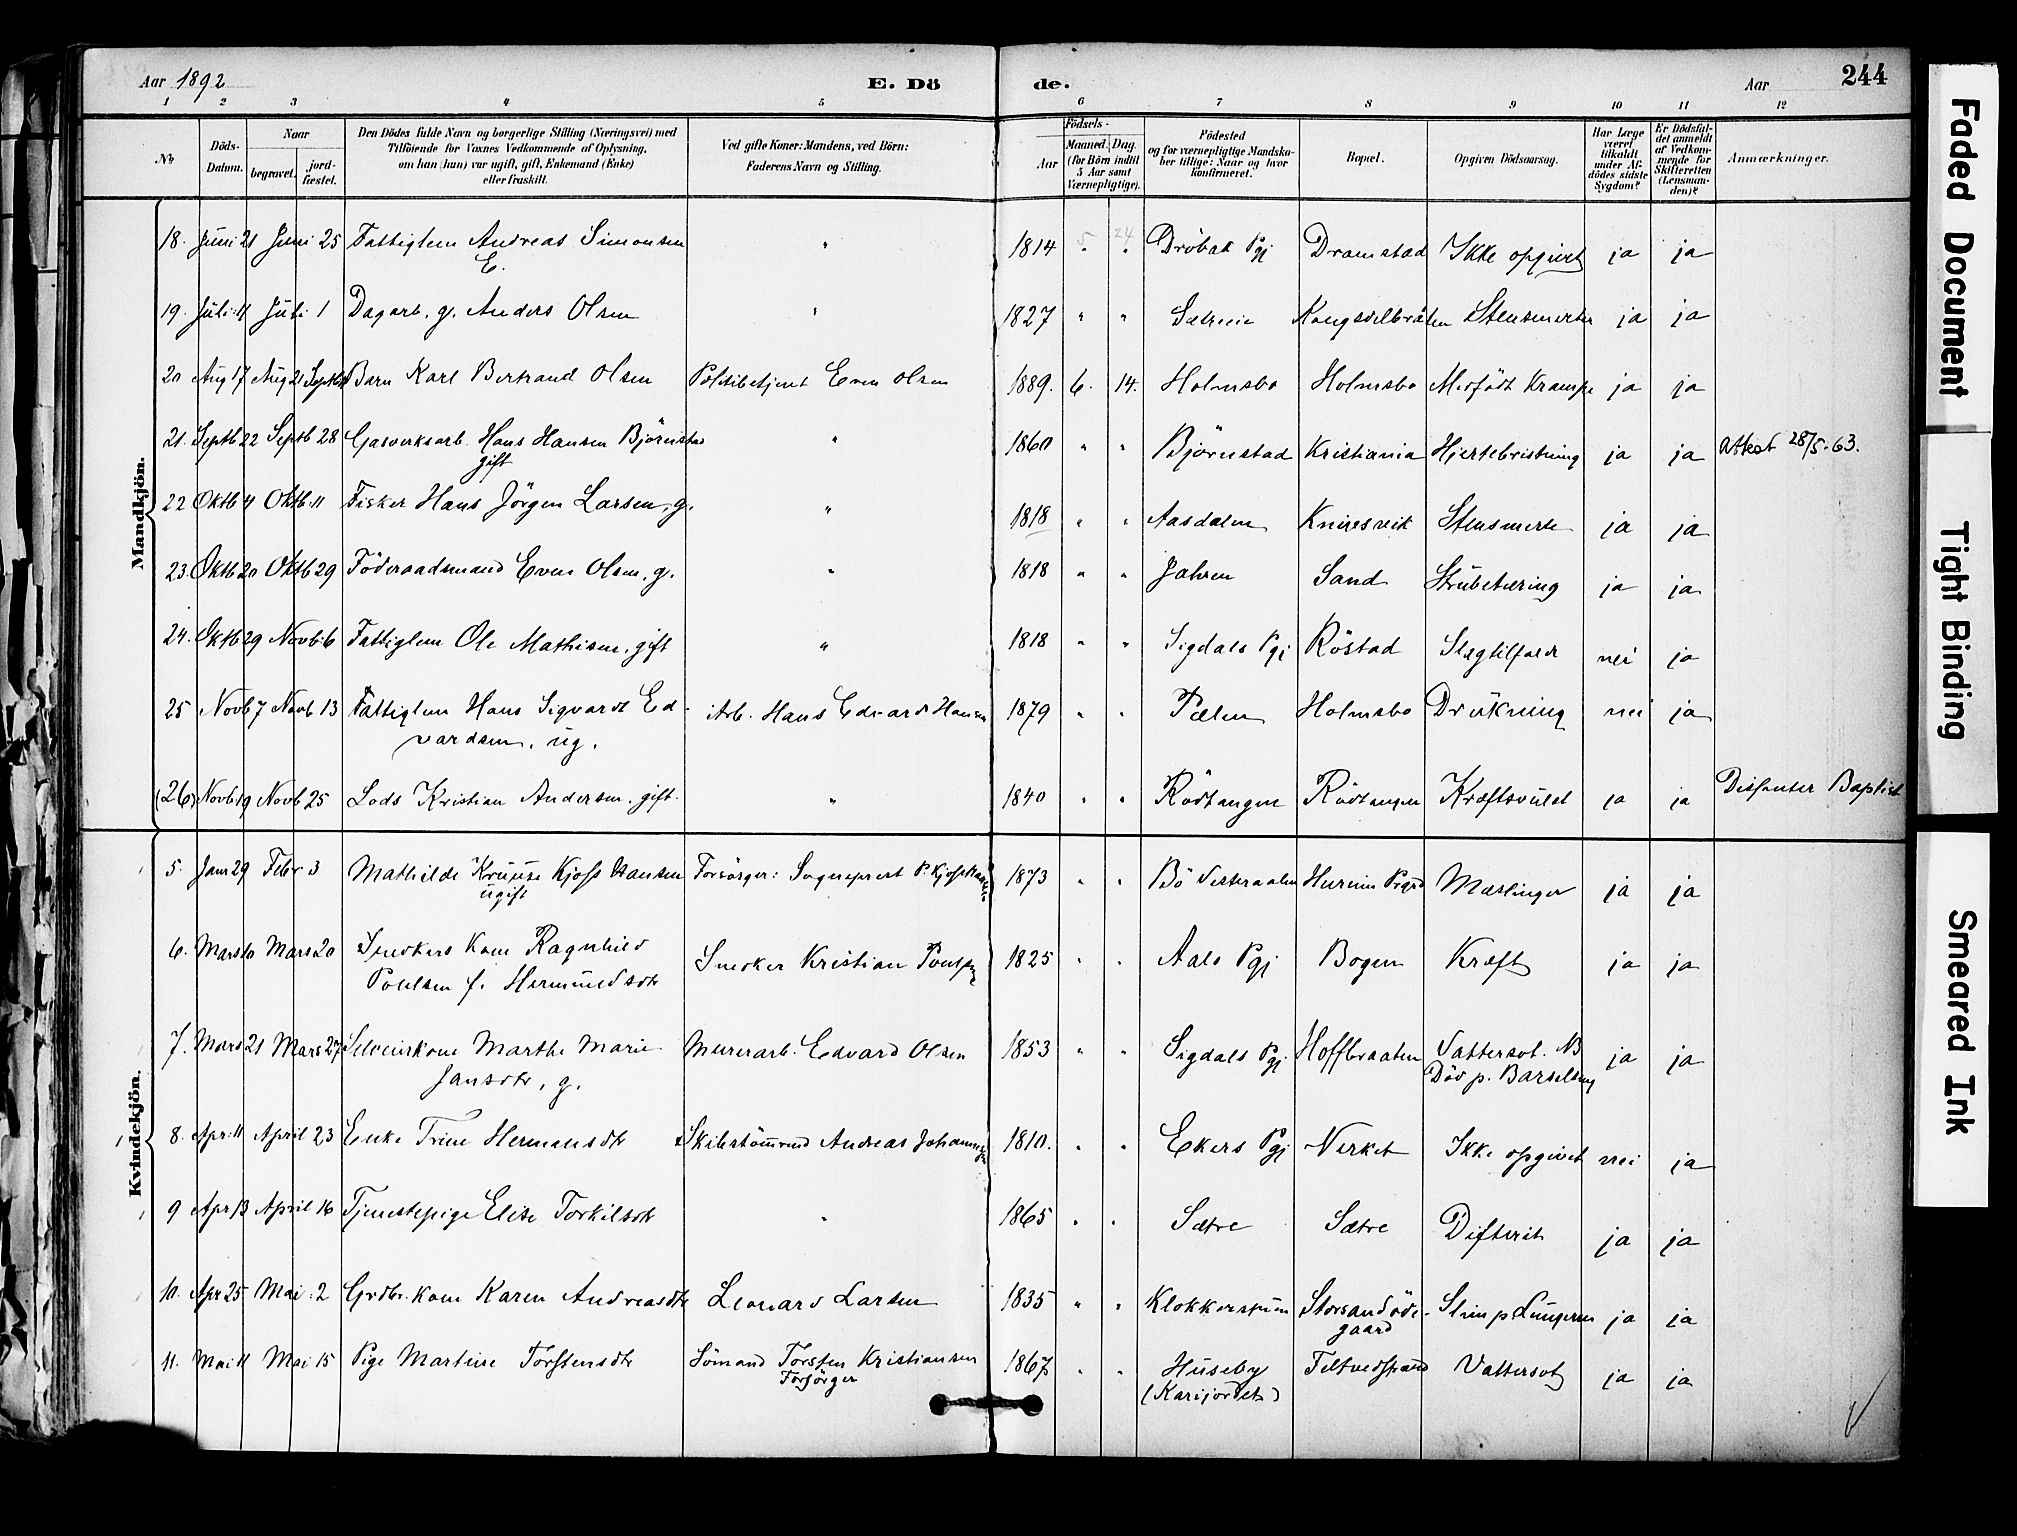 Aar 1892 E. Dö de. Aar 244
1 2 3 4 5 6 7 8 9 10 11 12
No
Döds-Datum.
Naar
begravet.
jord-fæstet.
Den Dödes fulde Navn og borgerlige Stilling (Næringsvei) med
Tilföiende for Voxnes Vedkommende af Oplysning,
om han (hun) var ugift, gift, Enkemand (Enke)
eller fraskilt.
Ved gifte Koner: Mandens, ved Börn:
Faderens Navn og Stilling.
Födsels-
Aar
Maaned. Dag.
(for Börn indtil
5 Aar samt
Værnepligtige).
Födested
og for værnepligtige Mandska-
ber tillige: Naar og hvor
konfirmeret.
Bopæl.
Opgiven Dödsaarsag.
Har Læge
været
tilkaldt
under Af-
dödes sidste
Sygdom?
Er Dödsfal-
det anmeldt
af Vedkom-
mende for
Skifteretten
(Lensman-
den)?
Anmærkninger.
Mandkjön.
18. Juni 21 Juni 25 Fattiglem Andreas Simonsen " 1814 5 24 Dröbak Pgj Dramstad Ikke opgivet ja ja
E.
19. Juli 11 Juli 1 Dagarb. g. Anders Olsen " 1827 " " Sætreeie Kongsdelbråten Stensmerter ja ja
20 Aug 17 Aug 21 Barn Karl Bertrand Olsen Politibetjent Even Olsen 1889. 6. 14. Holmsbo Holmsbo Medfödt Krampe ja ja
21. Septb 22 Septb 28 Gasverksarb. Hans Hansen Björnstad " 1860 " " Björnstad Kristiania Hjertebristning ja ja Attest 28/5-63.
gift
22 Oktb 4 Oktb 11 Fisker Hans Jörgen Larsen, g. " 1818 " " Aasdalen Knivesvik Stensmerte ja ja
23. Oktb 20 Oktb 29 Föderaadsmand Even Olsen, g. " 1818 " " Jahren Sand Strübetæring ja ja
24. Oktb 29 Novb 6 Fattiglem Ole Mathisen, gift " 1818 " " Sigdals Pgj Röstad Slagtilfæld nei ja
25 Novb 7 Novb 13 Fattiglem Hans Sigvardt Ed- Arb. Hans Edvard Hansen 1879 " " Pælen Holmsbo Drükning nei ja
vardsen, ug.
(26) Novb 19 Novb 25 Lods Kristian Andersen, gift. " 1840 " " Rödtangen Rödtangen Kræftsvulst ja ja Dissenter Baptist
Kvindekjön.
5. Janr 29 Febr 3 Mathilde Kruuse Kjoss Hansen Forsörger: Sogneprest P. Kjoss Hansen 1873 " " Bö Vesteraalen Hurum Prgrd Mæslinger ja ja
ugift
6. Mars 10 Mars 20 Snedkers Kone Ragnhild Snedker Kristian Poulsen 1825 " " Aals Pgj Bogen Kræft ja ja
Poulsen f. Hermundsdtr
7. Mars 21 Mars 27 Selveierkone Marthe Marie Murerarb. Edvard Olsen 1853 " " Sigdals Pgj Hoffbraaten Vattersot. NB ja ja
Jansdtr, g. Död p. Barselseng
8. Apr. 11 April 23 Enke Trine Hermansdtr Skibstömmd Andreas Johannesen 1810. " " Ekers Pgj Verket Ikke opgivet nei ja
9 Apr 13 April 16 Tjenestepige Elise Torkilsdtr " 1865 " " Sætre Sætre Difterit ja ja
10. Apr 25 Mai 2 Grdbr. kone Karen Andreasdtr Leonard Larsen 1835 " " Klokkerstuen Storsand öde- Slim p Lungerne ja ja
gaard
11. Mai 11 Mai 15 Pige Martine Torstensdtr Sömand Torsten Kristiansen 1867 " " Huseby Tæltvedstrand Vattersot ja ja
Forsörger (Karijordet)
Faded Document
Tight Binding
Smeared Ink